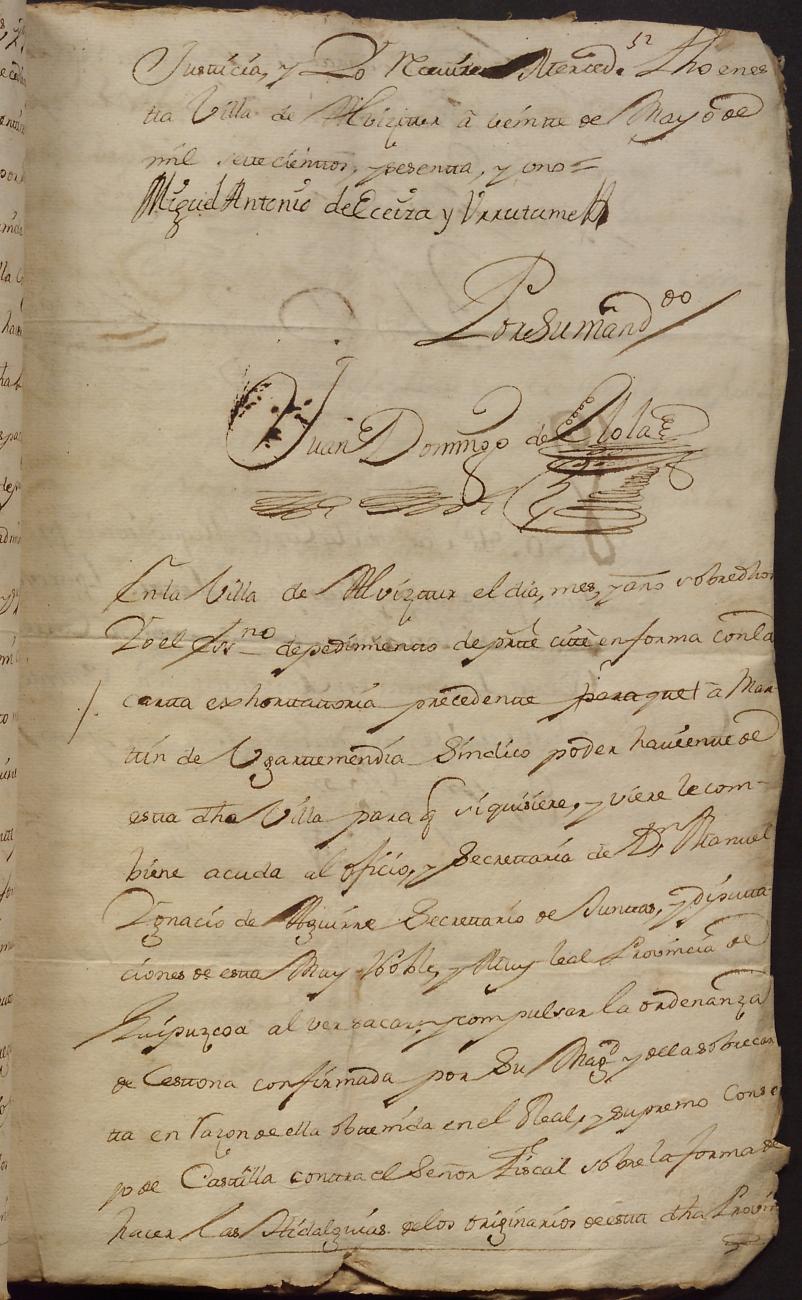 Justicia, y Yo Recivire Merced. Dho en es
tta Villa de Alvizttur â veintte de Mayo de
mil settecienttos, y sesentta, y uno =
Miguel Antonio de Eceiza y Urrutume
Por su mand.do
Juan Domingo de Elola
En la Villa de Alvizttur el dia, mes, y año sobredhos
Yo el Ess.no de pedimientto de partte citte en forma con la
cartta exhorttattoria precedentte para que â Mar
ttin de Ugarttemendia Sindico poder havientte de
estta dha Villa para q si quisiere, y viere le com-
biene acuda al oficio, y Secrettaría de D.n Manuel
Ygnacio de Aguirre Secrettario de Junttas, y diputta
ciones de estta Muy Noble, y Muy leal Provincia de
Guipuzcoa al ver sacar y compulsar la ordenanza
de Cesttona confirmada por Su Mag.d y de la sobrecar
tta en razon de ella obttenida en el Real, y supremo Conse
jo de Casttilla conttra el Señor Fiscal sobre la forma de
hacer las Hidalguias de los originarios de estta dha Provin